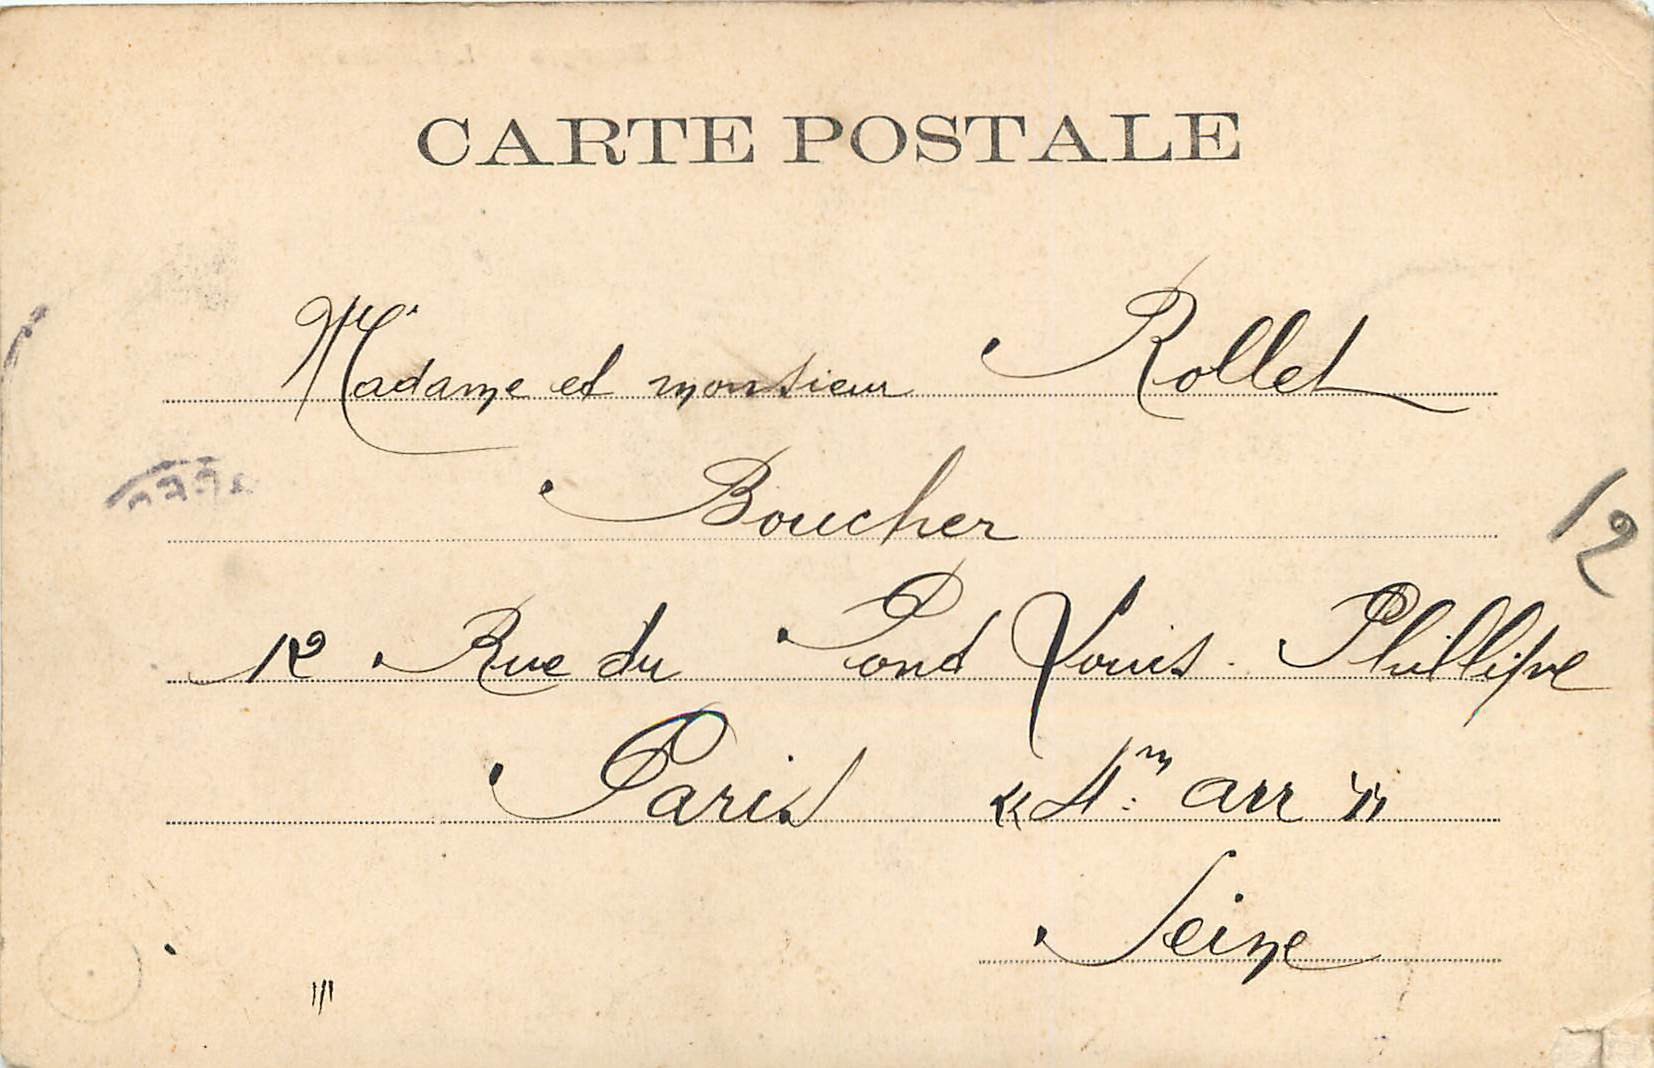 CARTE POSTALE
Madame et monsieur Rollet
Boucher
12 Rue du Pond Louis Phillipe
12
Paris « 4m arr »
Seine